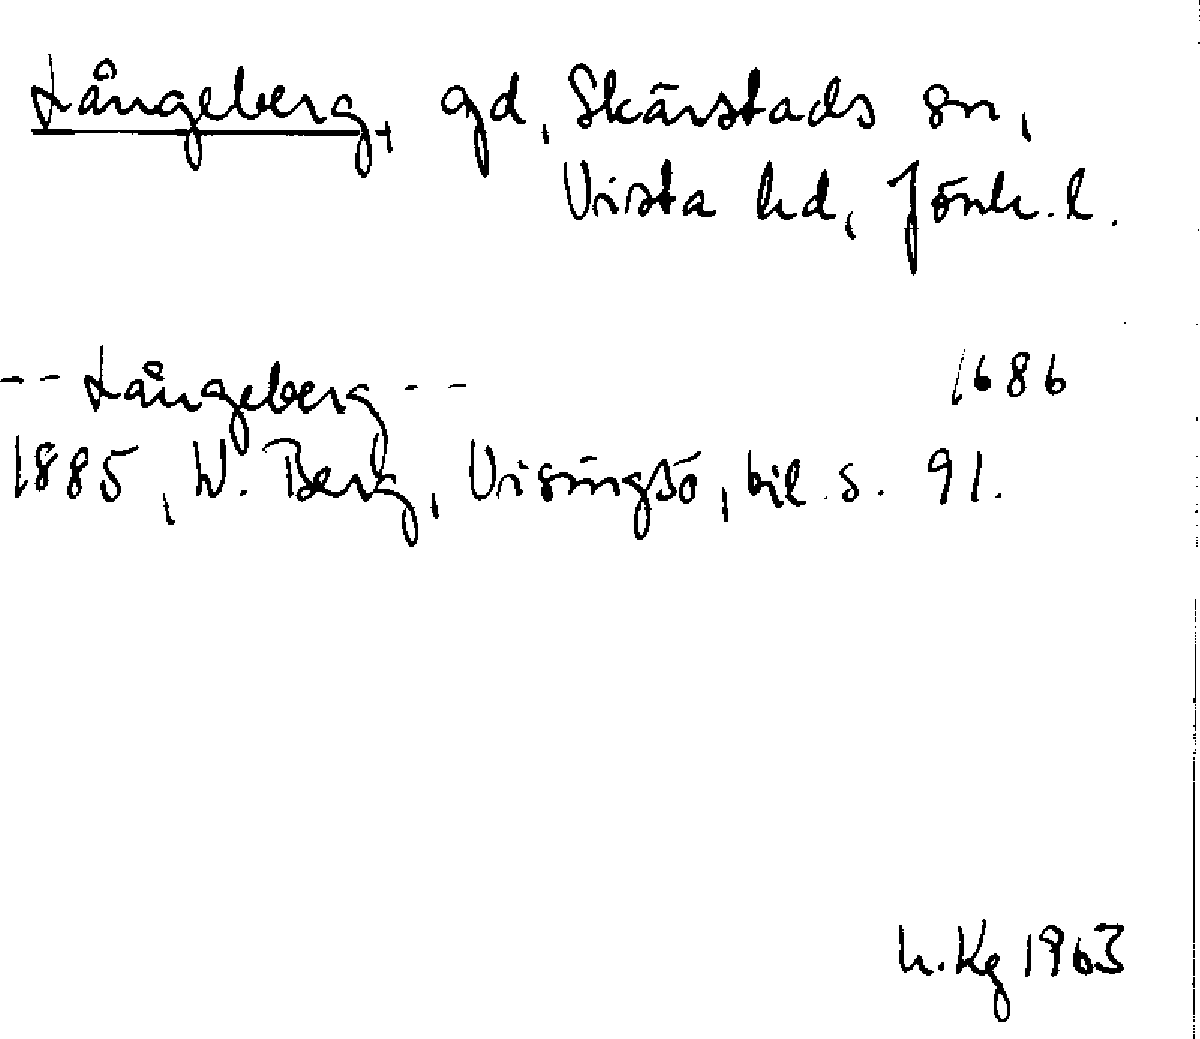 Långeberg, gd, Skärstads sn,
Vista hd, Jönk. l.
-- Långeberg -- 1686
1885, W. Berg, Visingsö, bil. s. 91.
h. Kg 1963